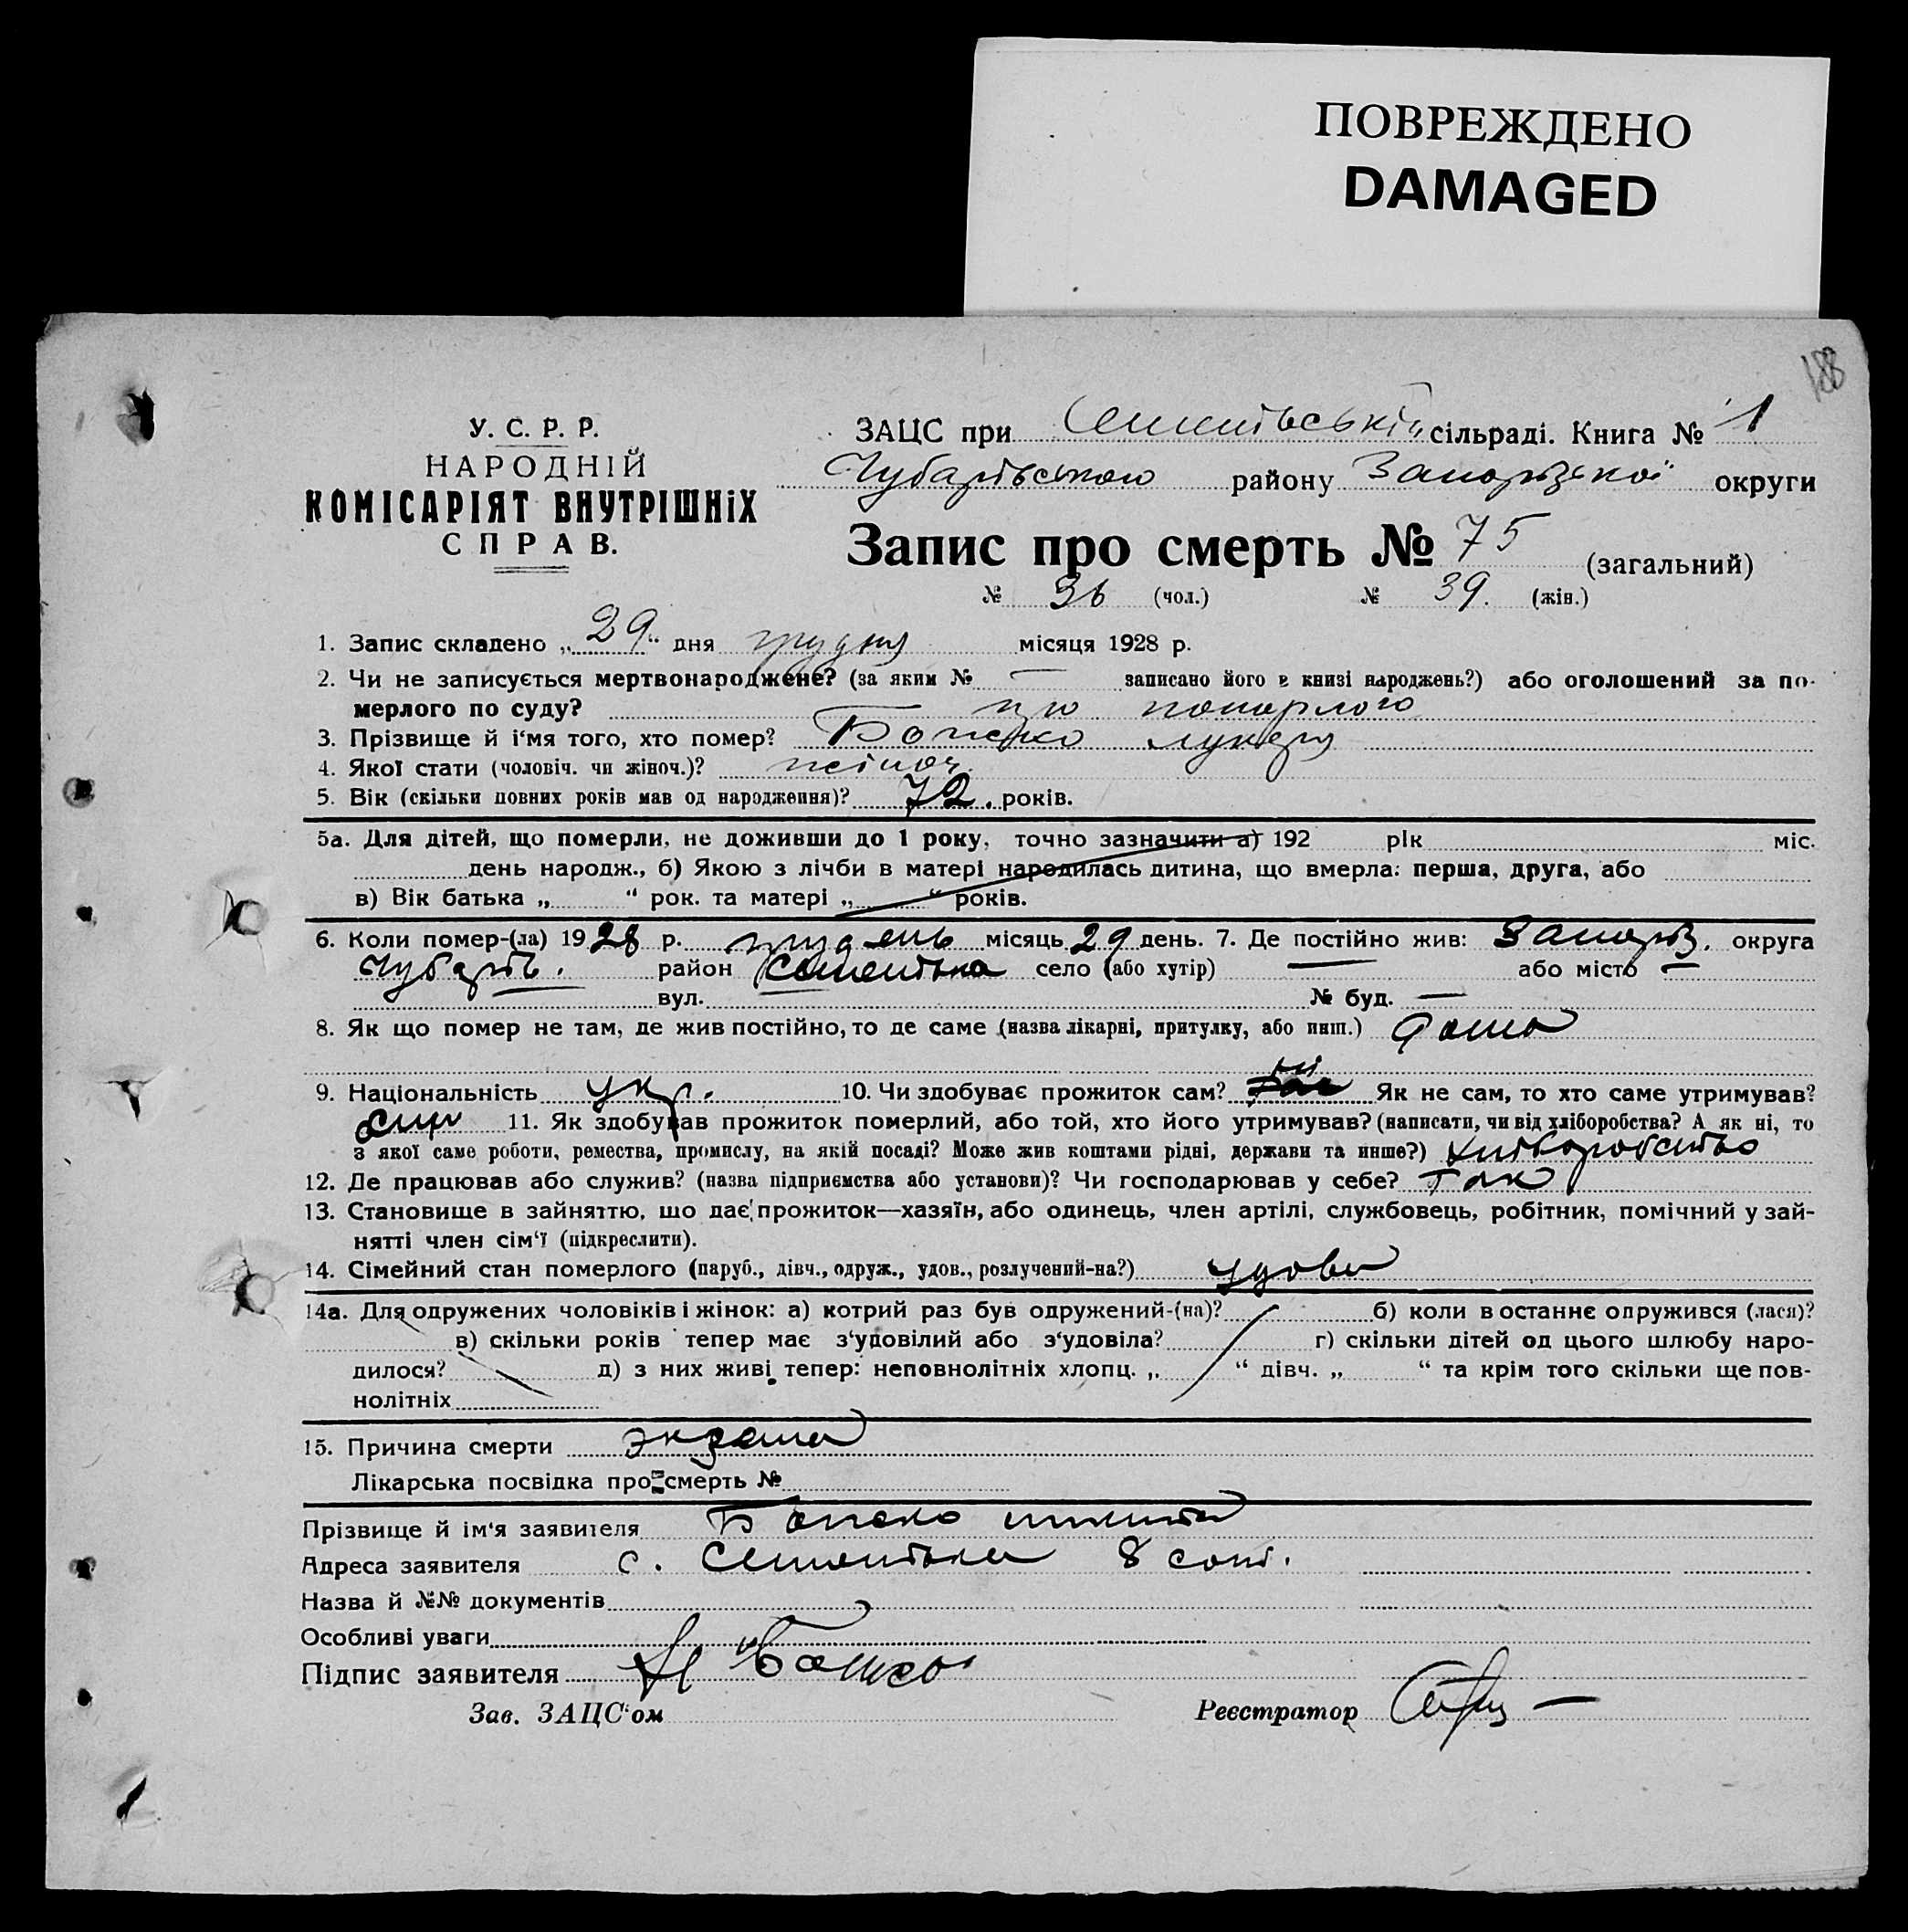 ПОВРЕЖДЕНО
DAMAGED
188
У. С. Р. Р.
НАРОДНІЙ
КОМІСАРІЯТ ВНУТРІШНІХ
СПРАВ.
ЗАЦС при сільраді. Книга № 1
Чубарівського району Запорізької округи
Запис про смерть № 75 (загальний)
№ 36 (чол.) № 39. (жін.)
1. Запис складено „29“ дня грудня місяця 1928 р.
2. Чи не записується мертвонароджене? (за яким № — записано його в книзі народжень?) або оголошений за по-
мерлого по суду? про померлого
3. Прізвище й і‘мя того, хто помер? Лукеря
4. Якої стати (чоловіч. чи жіноч.)? жіноч.
5. Вік (скільки повних років мав од народження)? 72. років.
5а. Для дітей, що померли, не доживши до 1 року, точно зазначити а) 192 рік міс.
день народж., б) Якою з лічби в матері народилась дитина, що вмерла: перша, друга, або
в) Вік батька „ “ рок. та матері „ “ років.
6. Коли помер-(ла) 1928 р. грудень місяць 29 день. 7. Де постійно жив: Запоріз. округа
Чубарів. район село (або хутір) — або місто —
вул. № буд. —
8. Як що помер не там, де жив постійно, то де саме (назва лікарні, притулку, або инш.) дома
9. Національність укр. 10. Чи здобуває прожиток сам? ні Як не сам, то хто саме утримував?
син 11. Як здобував прожиток померлий, або той, хто його утримував? (написати, чи від хліборобства? А як ні, то
з якої саме роботи, ремества, промислу, на якій посаді? Може жив коштами рідні, держави та инше?) хліборобство
12. Де працював або служив? (назва підприємства або установи)? Чи господарював у себе? так
13. Становище в зайняттю, що дає прожиток—хазяїн, або одинець, член артілі, службовець, робітник, помічний у зай-
нятті член сім‘ї (підкреслити).
14. Сімейний стан померлого (паруб., дівч., одруж., удов., розлучений-на?) удова
14а. Для одружених чоловіків і жінок: а) котрий раз був одружений-(на)? б) коли в останнє одружився (лася)?
в) скільки років тепер має з‘удовілий або з‘удовіла? г) скільки дітей од цього шлюбу наро-
дилося? д) з них живі тепер: неповнолітніх хлопц. „ “ дівч. „ “ та крім того скільки ще пов-
нолітніх
15. Причина смерти экзема
Лікарська посвідка про смерть №
Прізвище й ім‘я заявителя
Адреса заявителя с. 8 сот.
Назва й №№ документів
Особливі уваги
Підпис заявителя
Зав. ЗАЦС‘ом Реєстратор